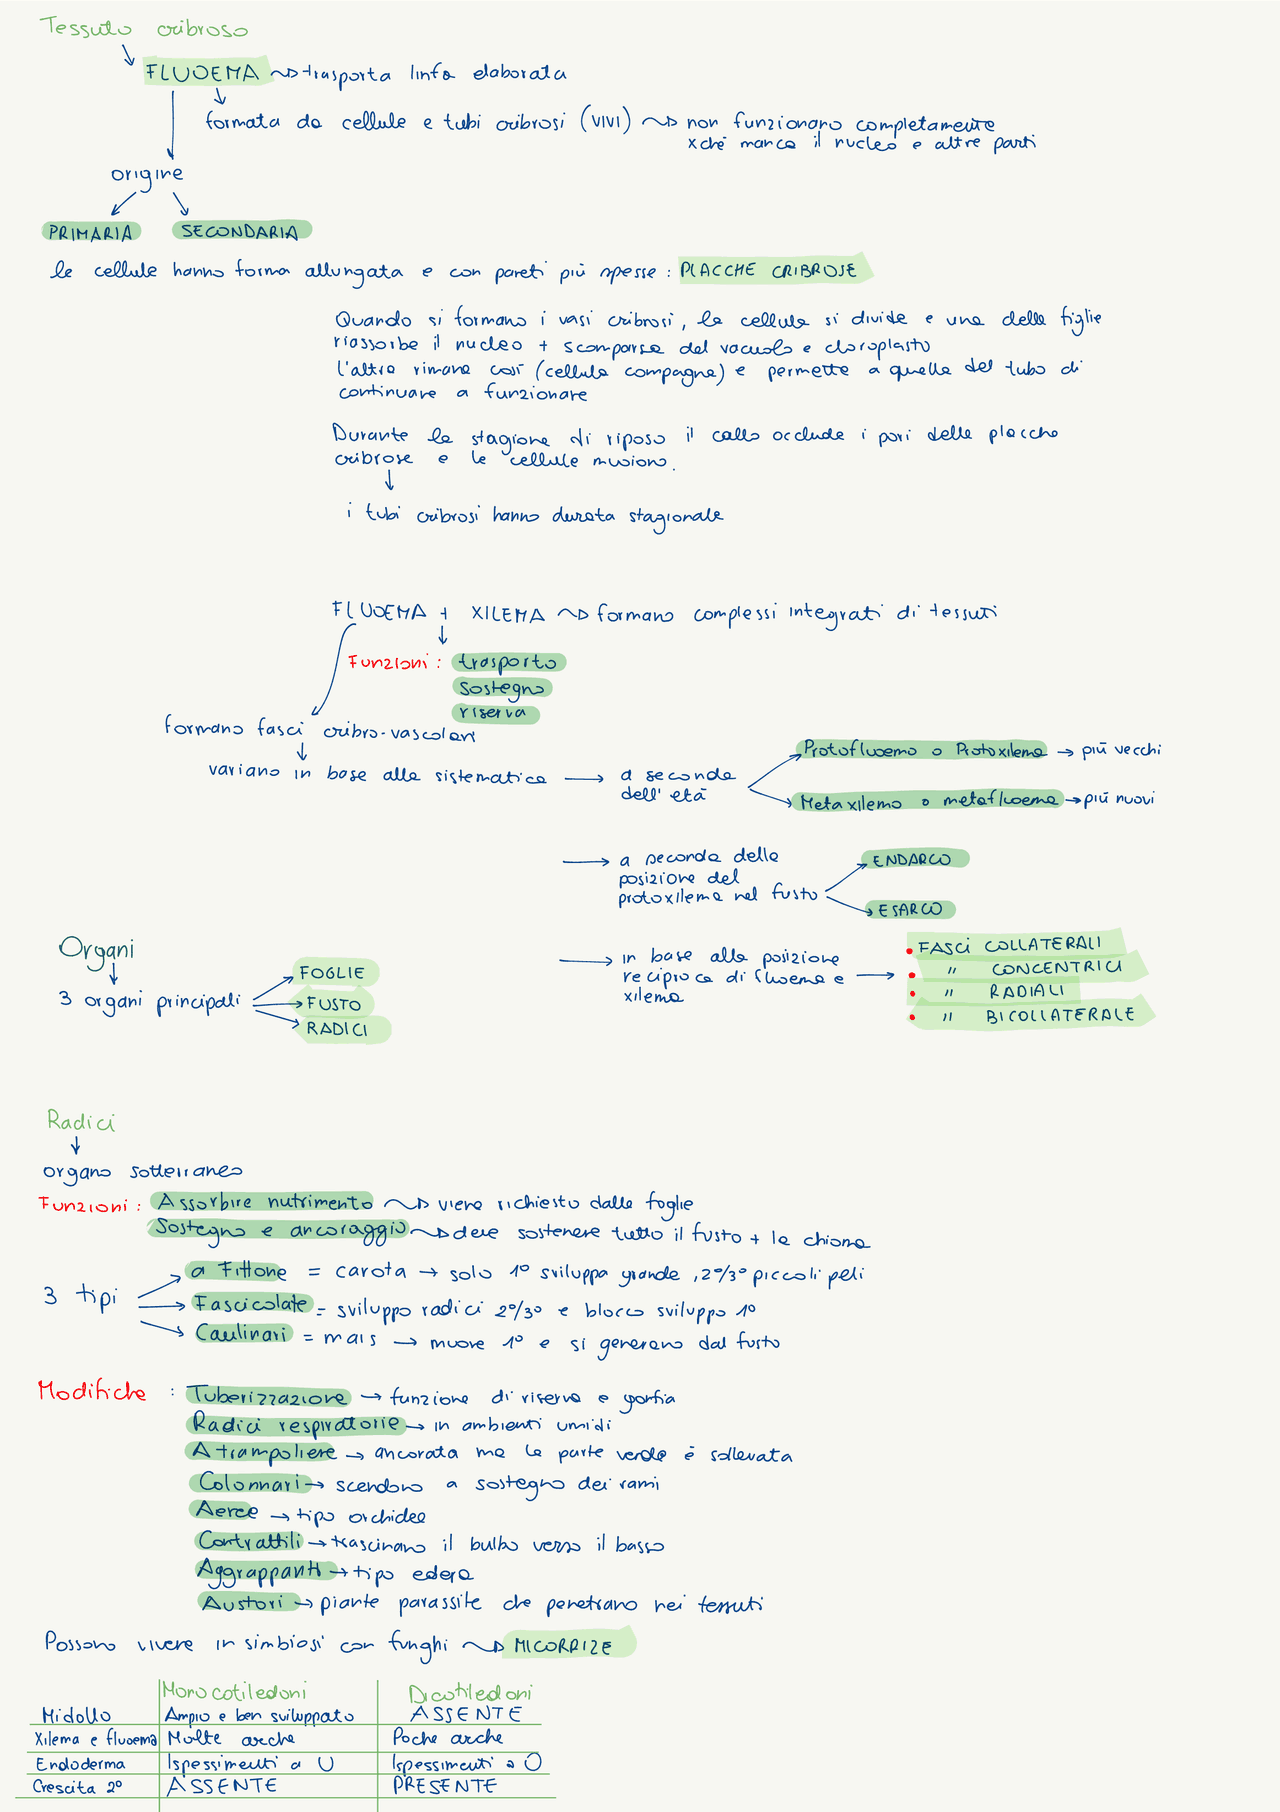 Tessuto cribroso
FLUOEMA ~> trasporta linfa elaborata
formata da cellule e tubi cribrosi (VIVI) ~> non funzionano completamente
xchè manca il nucleo e altre parti
origine
PRIMARIA SECONDARIA
le cellule hanno forma allungata e con pareti più spesse : PLACCHE CRIBROSE
Quando si formano i vasi cribrosi, la cellula si divide e una delle figlie
riassorbe il nucleo + scomparsa del vacuolo e cloroplasto
l'altra rimane così (cellula compagna) e permette a quella del tubo di
continuare a funzionare
Durante la stagione di riposo il callo occlude i pori delle placche
cribrose e le cellule muoiono.
i tubi cribrosi hanno durata stagionale
FLUOEMA + XILEMA ~> formano complessi integrati di tessuti
Funzioni : trasporto
Sostegno
riserva
formano fasci cribro-vascolari
variano in base alla sistematica → a seconda
dell'età
Protofluema o Protoxilema → più vecchi
Metaxilema o metafluema → più nuovi
→ a seconda della
posizione del
protoxilema nel fusto
ENDARCO
ESARCO
Organi
3 organi principali
FOGLIE
FUSTO
RADICI
→ in base alla posizione
reciproca di fluoema e →
xilema
• FASCI COLLATERALI
• " CONCENTRICI
• " RADIALI
• " BICOLLATERALE
Radici
organo sotterraneo
Funzioni : Assorbire nutrimento ~> viene richiesto dalle foglie
Sostegno e ancoraggio ~> deve sostenere tutto il fusto + la chioma
3 tipi
a Fittone = carota → solo 1° sviluppa grande, 2°/3° piccoli peli
Fascicolate = sviluppo radici 2°/3° e blocco sviluppo 1°
Caulinari = mais → muore 1° e si generano dal fusto
Modifiche : Tuberizzazione → funzione di riserva e gonfia
Radici respiratorie → in ambienti umidi
A trampoliere → ancorata ma la parte verde è sollevata
Colonnari → scendono a sostegno dei rami
Aeree → tipo orchidea
Contrattili → trascinano il bulbo verso il basso
Aggrappanti → tipo edera
Austori → piante parassite che penetrano nei tessuti
Possono vivere in simbiosi con funghi ~> MICORRIZE
Monocotiledoni Dicotiledoni
Midollo Ampio e ben sviluppato ASSENTE
Xilema e fluoema Molte arche Poche arche
Endoderma Ispessimenti a U Ispessimenti a O
Crescita 2° ASSENTE PRESENTE